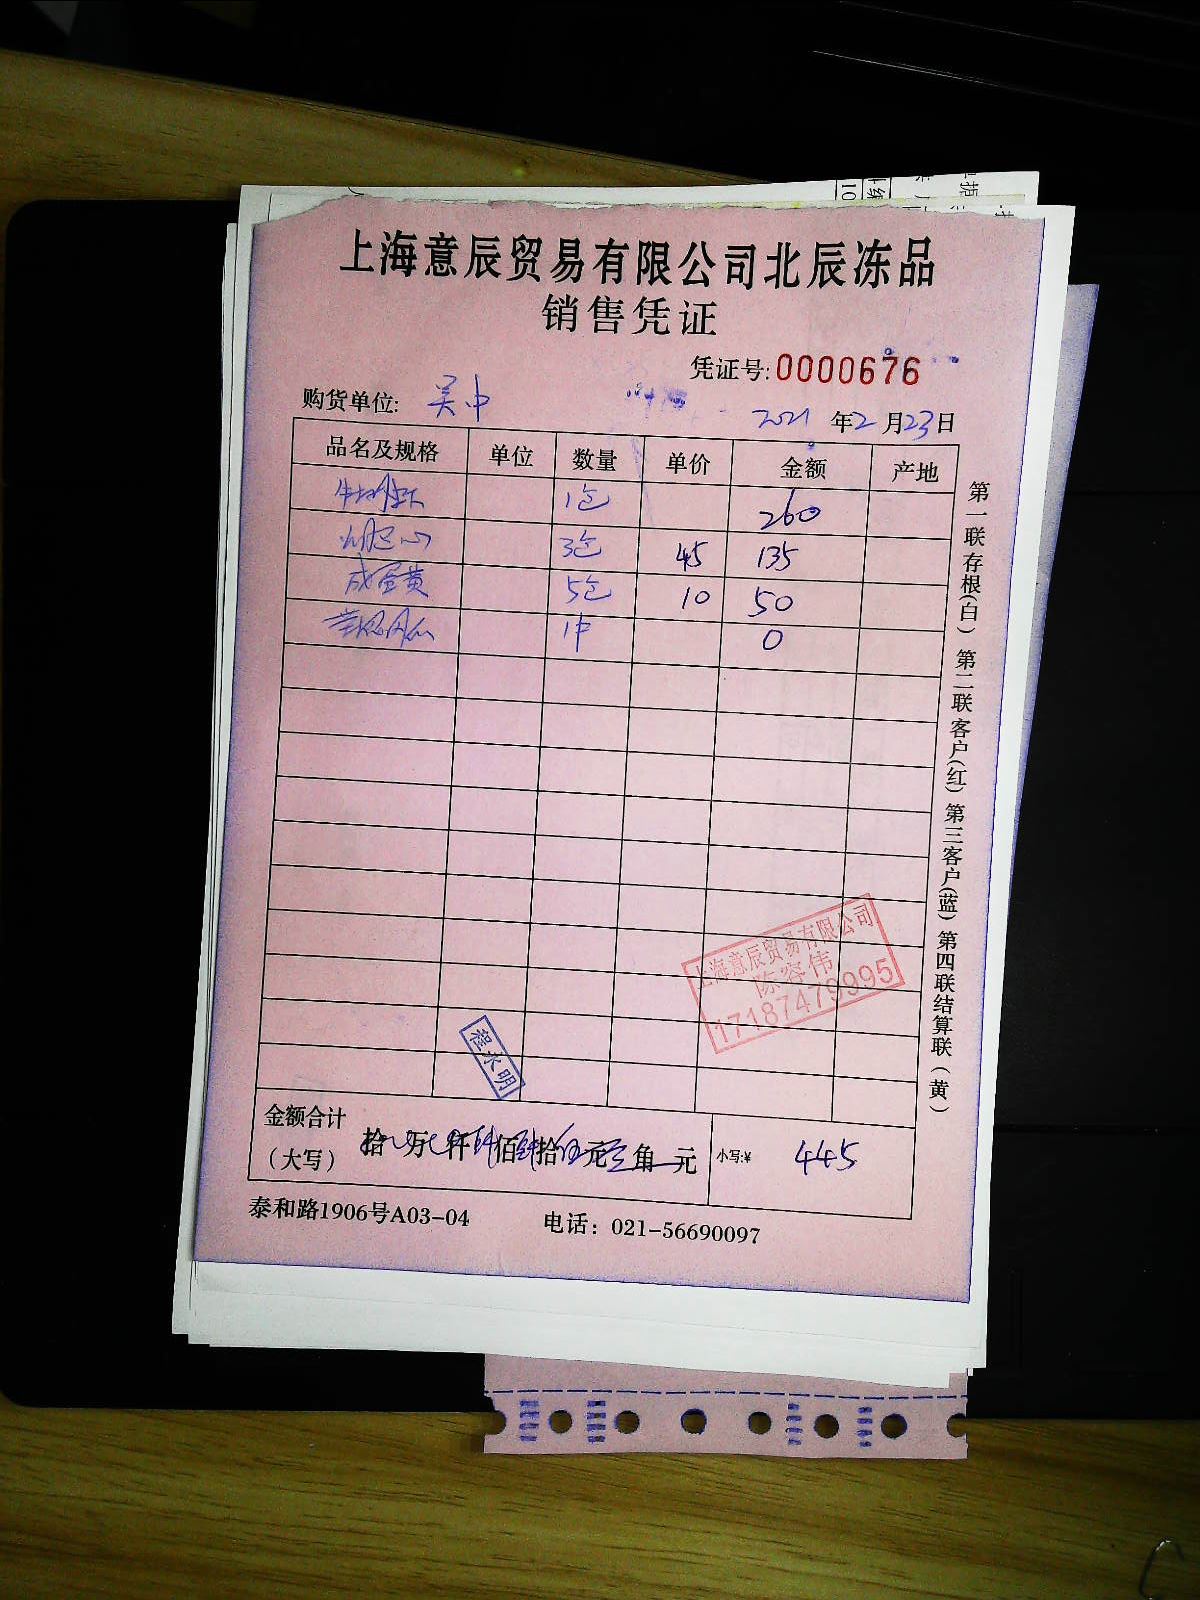 上海意辰贸易有限公司北辰冻品
销售凭证
凭证号:0000676
购货单位: 吴中
2021 年2月23日
品名及规格 单位 数量 单价 金额 产地
1包 260
3包 45 135
咸蛋黄 5包 10 50
1件 0
上海意辰贸易有限公司
陈容伟
17187479995
程永明
金额合计
(大写) 拾 万 仟 佰 拾 元 角 元 小写:¥ 445
泰和路1906号A03-04 电话: 021-56690097
第一联存根(白) 第二联客户(红) 第三客户(蓝) 第四联结算联(黄)